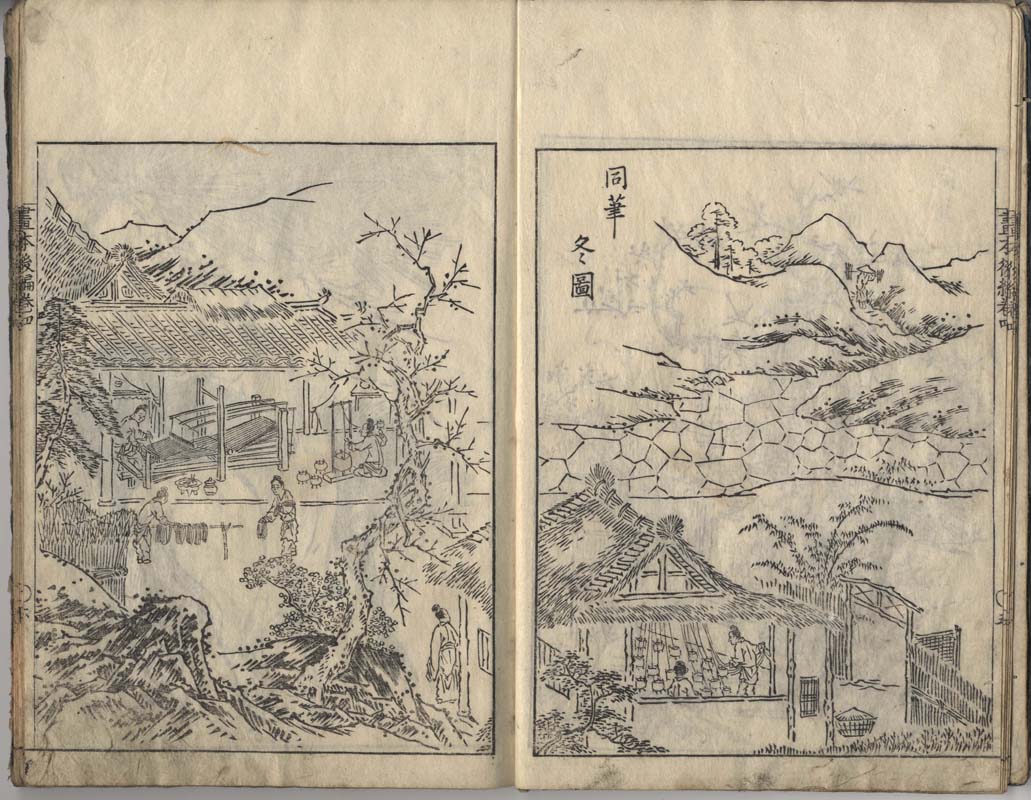 畫本後編卷四
同筆
冬圖
畫本後編卷四